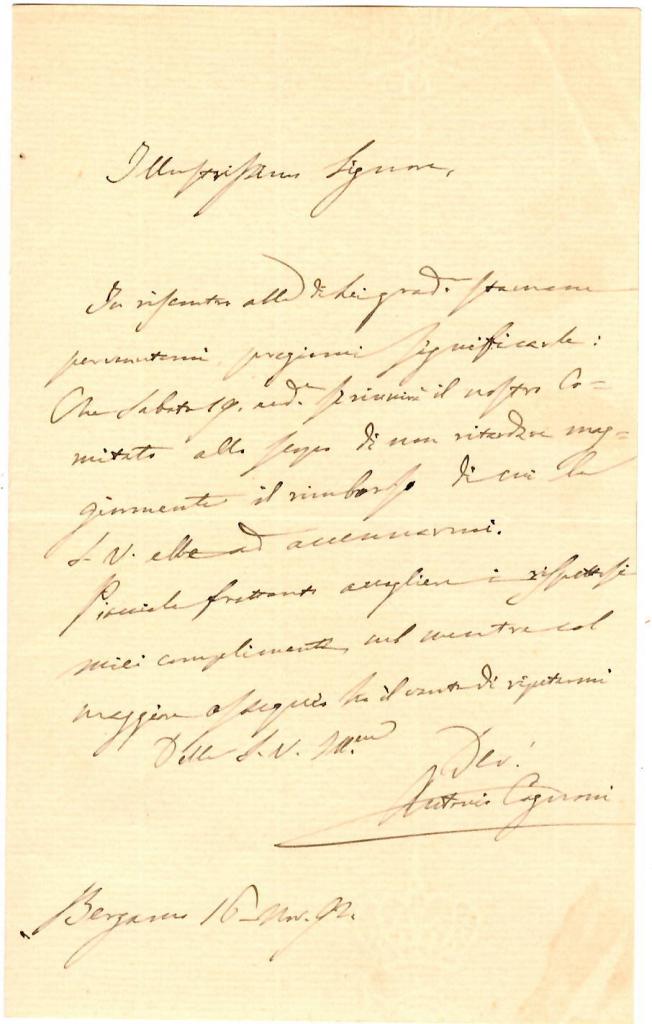 Illustrissimo Signore,
In riscontro alla di Lei grad.ª stamane
pervenutami pregiomi significarle:
Che Sabato 19. and.e si riunirà il nostro Co=
mitato allo scopo di non ritardare mag=
giormente il rimborso di cui la
S. V. ebbe ad accennarmi.
Piacciale frattanto accogliere i rispettosi
miei complimenti, nel mentre col
maggiore ossequio ho il vanto di ripetermi
Della S. V. Ill.ma
Dev.
Antonio Cagnoni
Bergamo 16 Nov. 92.